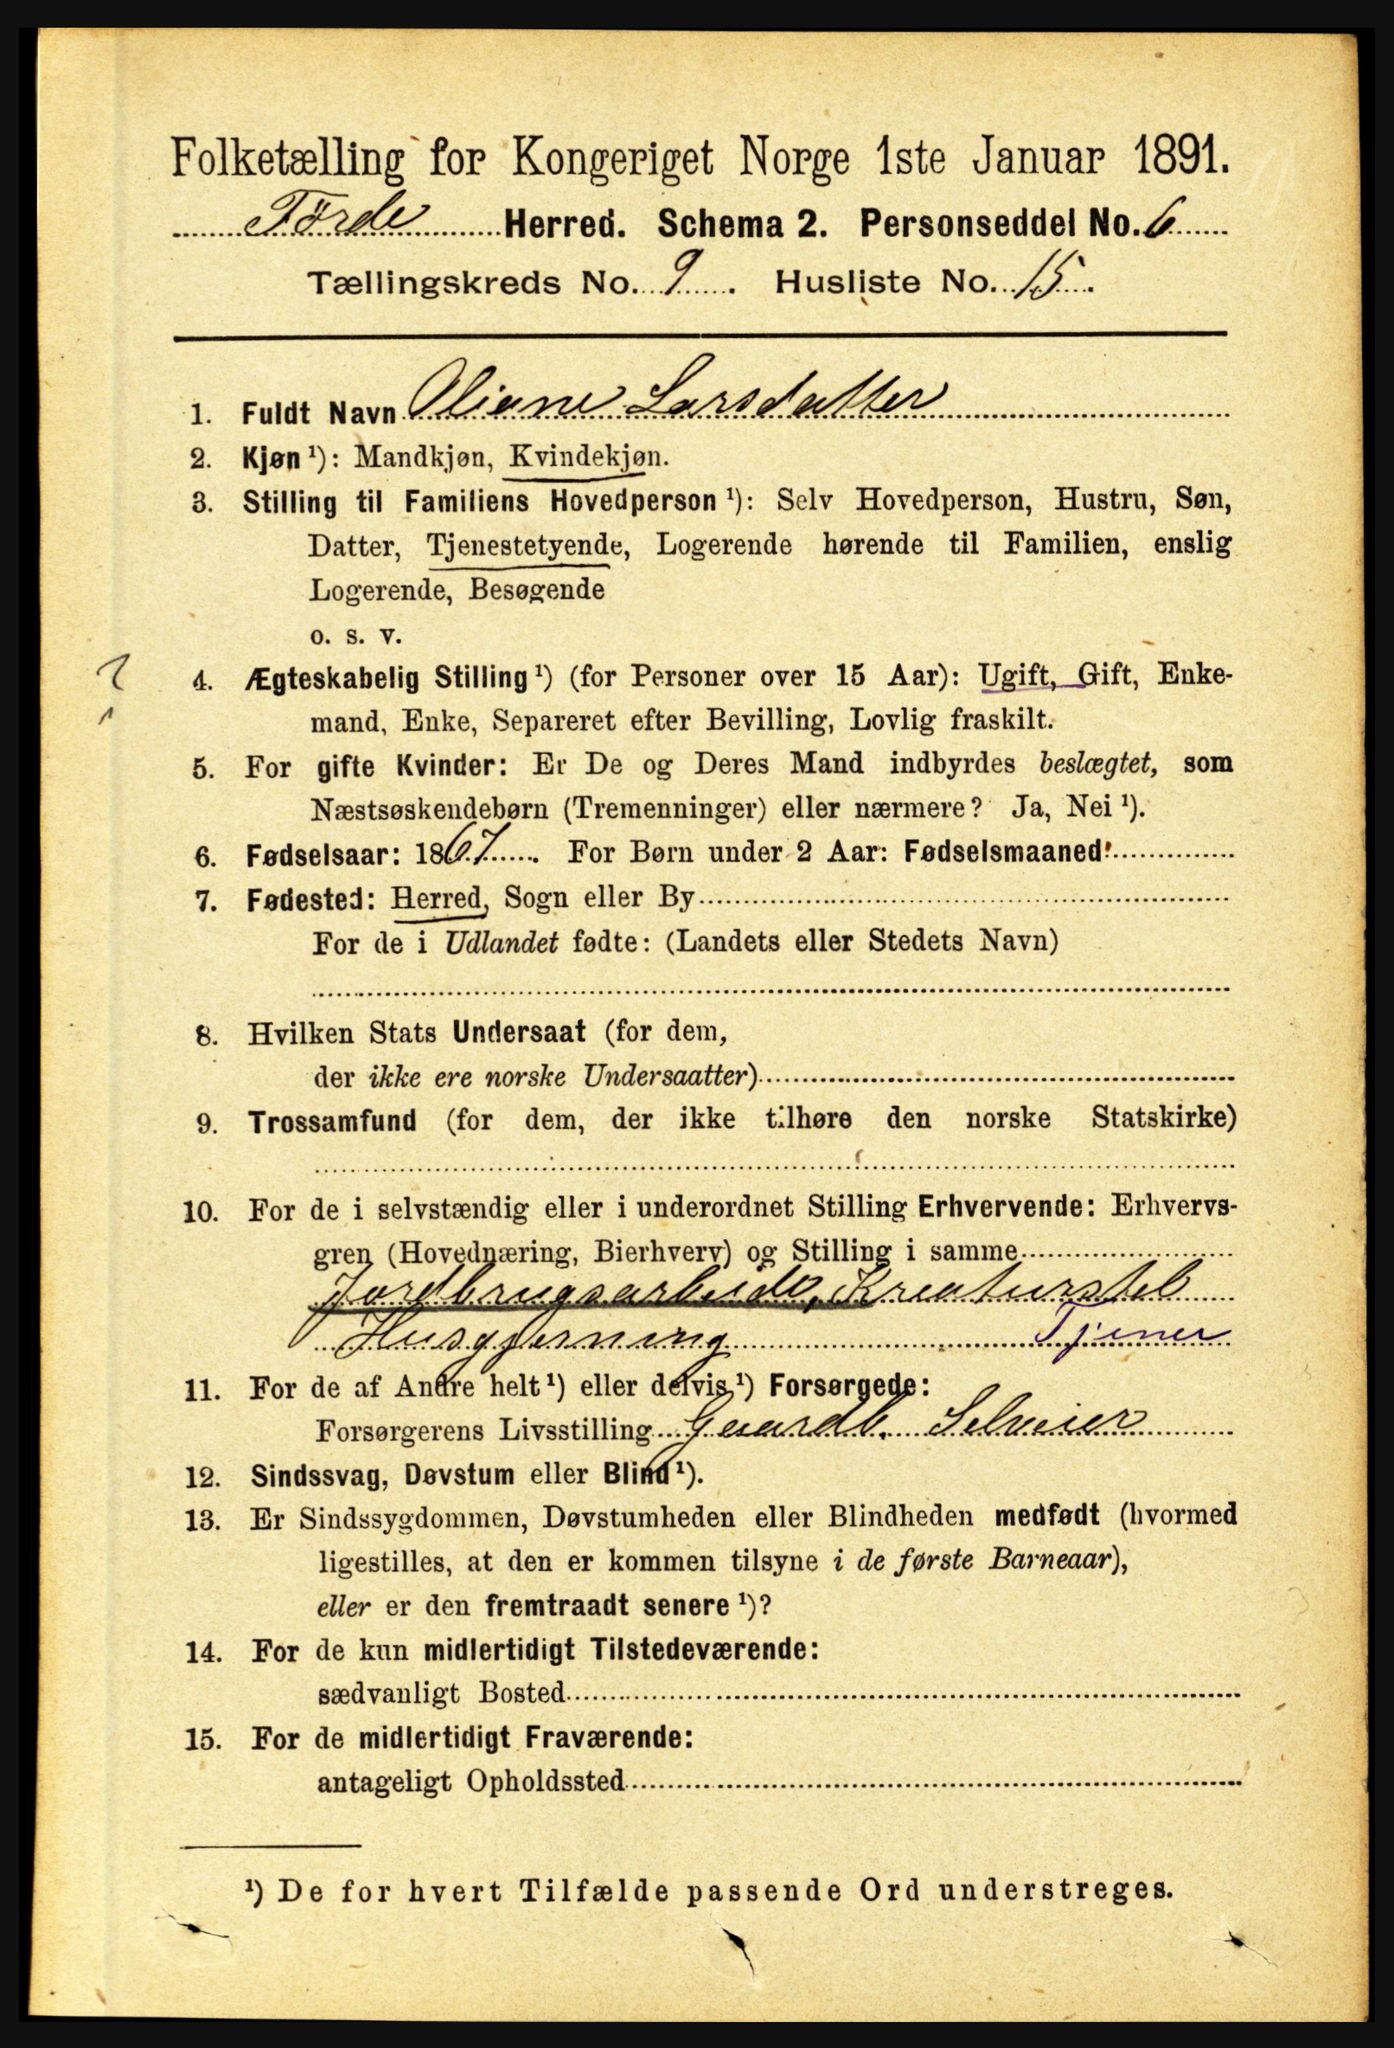 Folketælling for Kongeriget Norge 1ste Januar 1891.
Förde Herred. Schema 2. Personseddel No. 6
Tællingskreds No. 9. Husliste No. 15.
1. Fuldt Navn Oliane Larsdatter
2. Kjøn ¹): Mandkjøn, Kvindekjøn.
3. Stilling til Familiens Hovedperson ¹): Selv Hovedperson, Hustru, Søn,
Datter, Tjenestetyende, Logerende hørende til Familien, enslig
Logerende, Besøgende
o. s. v.
4. Ægteskabelig Stilling ¹) (for Personer over 15 Aar): Ugift, Gift, Enke-
mand, Enke, Separeret efter Bevilling, Lovlig fraskilt.
5. For gifte Kvinder: Er De og Deres Mand indbyrdes beslægtet, som
Næstsøskendebørn (Tremenninger) eller nærmere? Ja, Nei ¹).
6. Fødselsaar: 1867. For Børn under 2 Aar: Fødselsmaaned:
7. Fødested: Herred, Sogn eller By
For de i Udlandet fødte: (Landets eller Stedets Navn)
8. Hvilken Stats Undersaat (for dem,
der ikke ere norske Undersaatter)
9. Trossamfund (for dem, der ikke tilhøre den norske Statskirke)
10. For de i selvstændig eller i underordnet Stilling Erhvervende: Erhvervs-
gren (Hovednæring, Bierhverv) og Stilling i samme
Jordbrugsarbeide, Kreaturstel
Husgjerning Tjener
11. For de af Andre helt ¹) eller delvis ¹) Forsørgede:
Forsørgerens Livsstilling Gaardb. Selveier
12. Sindssvag, Døvstum eller Blind ¹).
13. Er Sindssygdommen, Døvstumheden eller Blindheden medfødt (hvormed
ligestilles, at den er kommen tilsyne i de første Barneaar),
eller er den fremtraadt senere ¹)?
14. For de kun midlertidigt Tilstedeværende:
sædvanligt Bosted
15. For de midlertidigt Fraværende:
antageligt Opholdssted
¹) De for hvert Tilfælde passende Ord understreges.